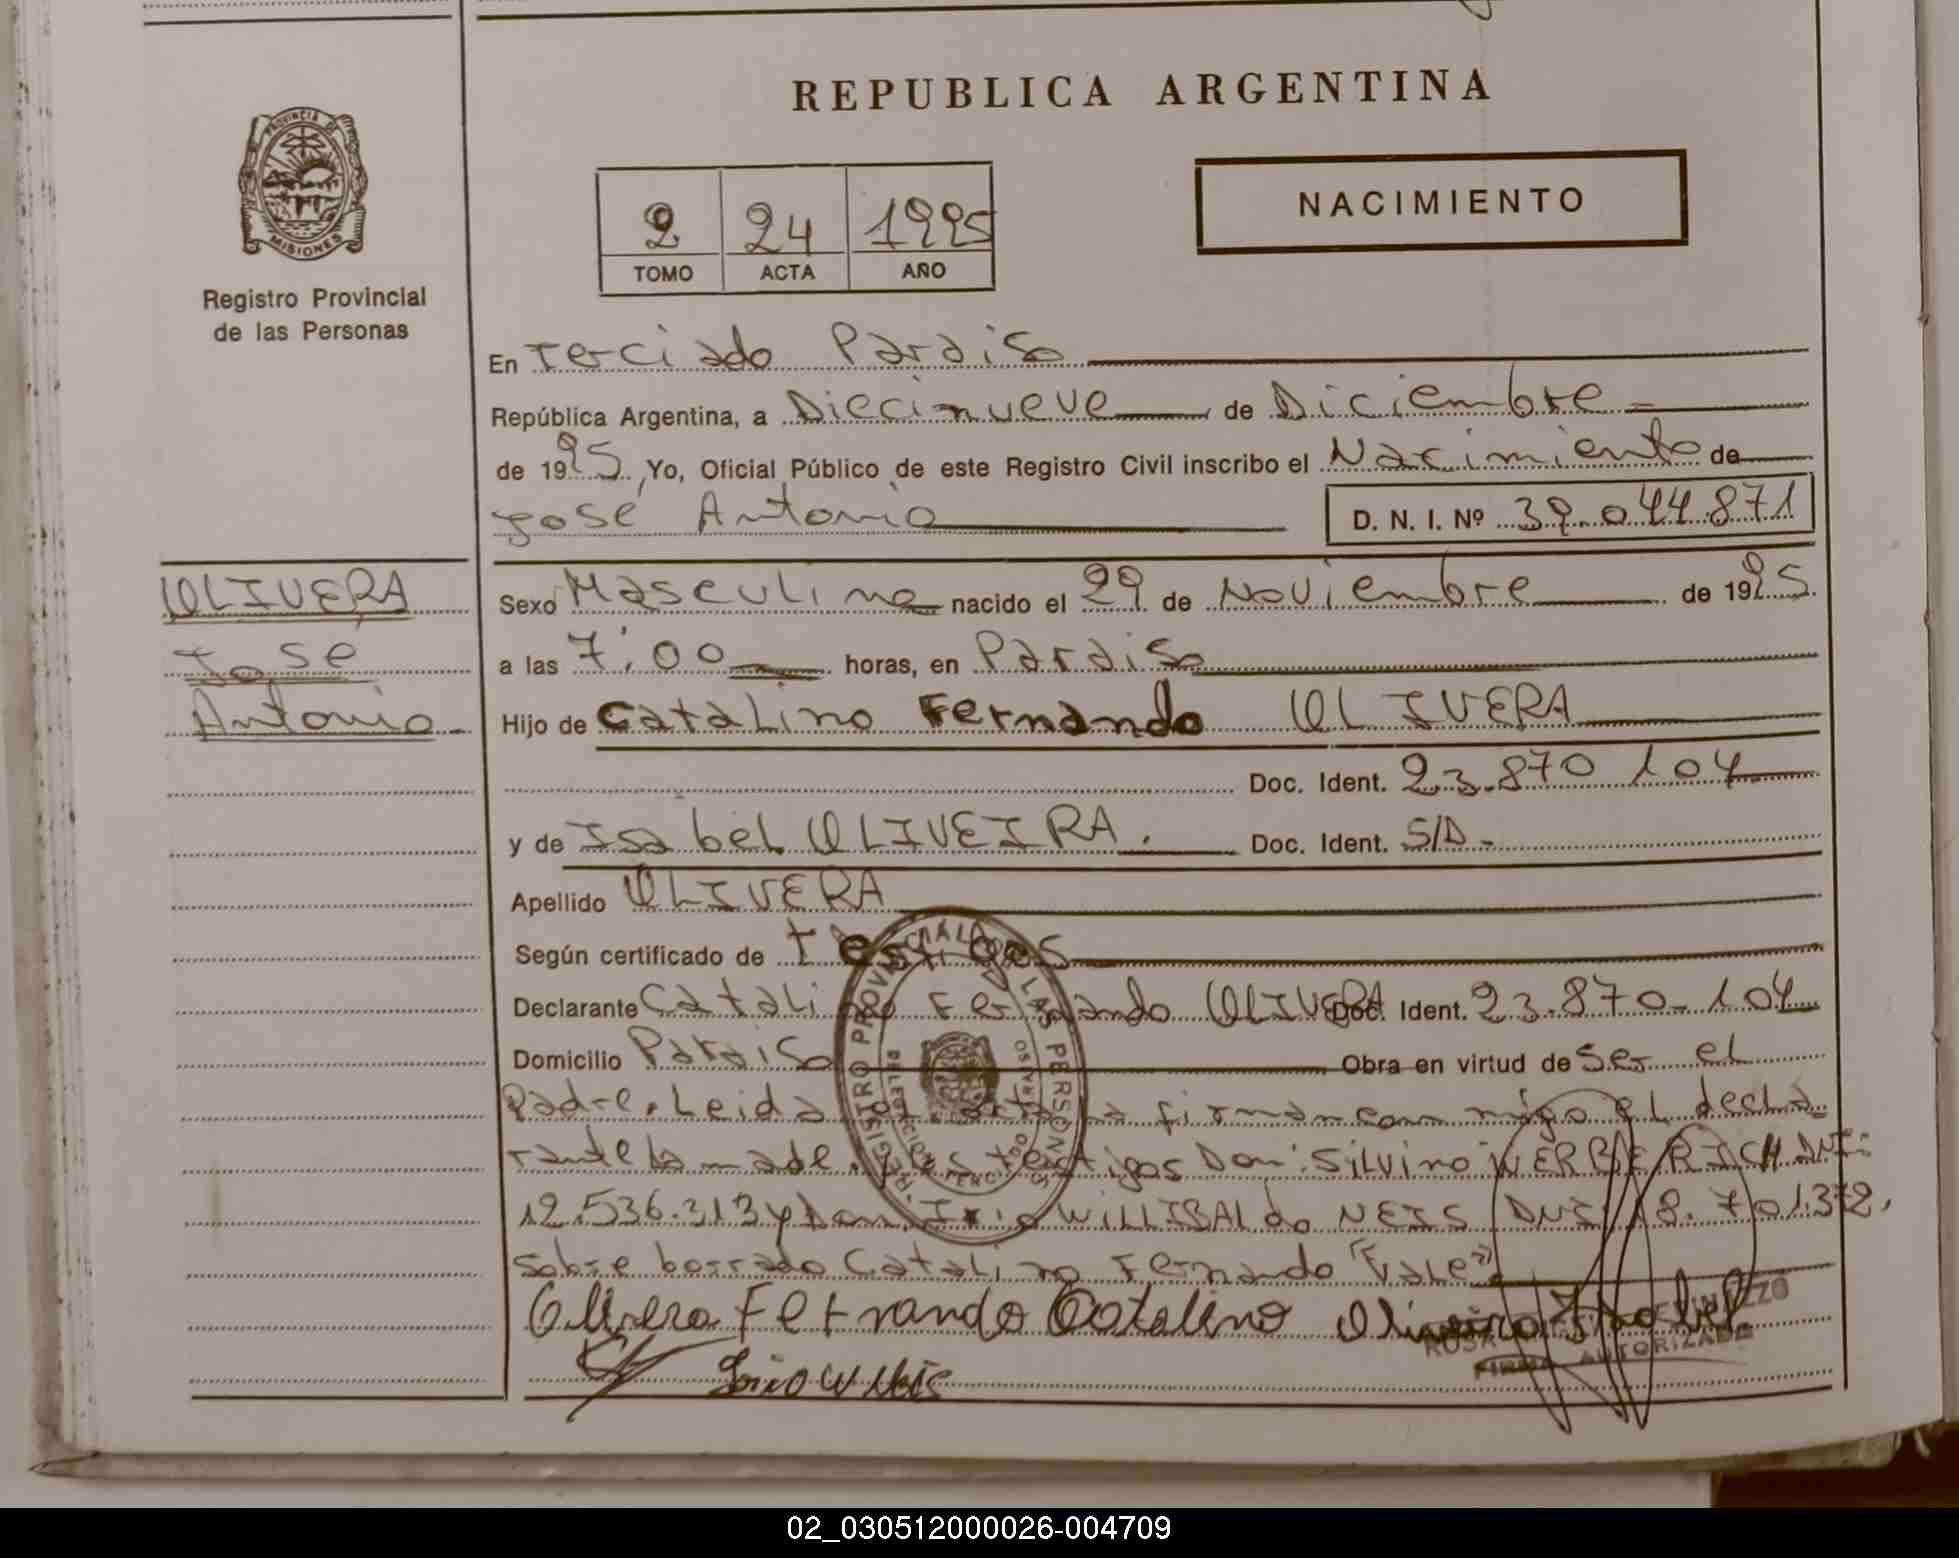 REPUBLICA ARGENTINA
PROVINCIA DE
MISIONES
Registro Provincial
de las Personas
NACIMIENTO
2 24 1995
TOMO ACTA AÑO
En Terciado Paraiso
República Argentina, a Diecinueve de Diciembre
de 1995, Yo, Oficial Público de este Registro Civil inscribo el Nacimiento de
José Antonio D. N. I. Nº 39.044.871
OLIVERA
José
Antonio
Sexo Masculino nacido el 29 de Noviembre de 1995
a las 7,00 horas, en Paraiso
Hijo de Catalino Fernando OLIVERA
Doc. Ident. 23.870 104
y de Isabel OLIVEIRA. Doc. Ident. S/D.
Apellido OLIVERA
Según certificado de testigos
Declarante Catalino Fernando OLIVERA Doc. Ident. 23.870-104
Domicilio Paraiso Obra en virtud de Ser el
Padre. Leida el acta la firman conmigo el decla-
rante la made. y los testigos Don: Silvino WERBERICH DNI:
12.536.313 y Don. Irio WILLIBALdo NEIS DNI: 18.701.372.
Sobre borrado Catalino Fernando "Vale".
Olivera Fernando Catalino Oliveira Isabel
Irio W Neis
REGISTRO PROVINCIAL DE LAS PERSONAS
DELEGACION TERCIADO PARAISO
ROSA
FIRMA AUTORIZADA
02_030512000026-004709